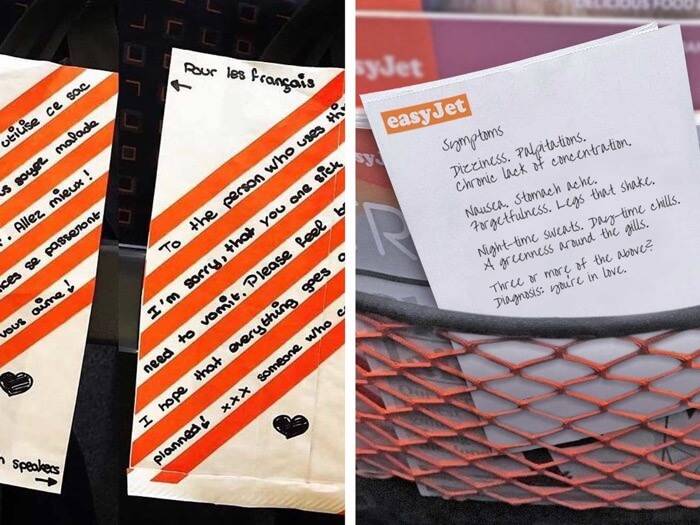 utilise ce sac
us soyez malade
. Allez mieux!
ces se passeront
vous aime!
n speakers
Pour les français
To the person who uses thi
I'm sorry, that you are sick
need to vomit. Please feel be
I hope that everything goes a
planned! xxx someone who c
DELICIOUS FOOD
syJet
easyJet
Symptoms
Dizziness. Palpitations.
Chronic lack of concentration.
Nausea. Stomach ache.
Forgetfulness. Legs that shake.
Night-time sweats. Day-time chills.
A greenness around the gills.
Three or more of the above?
Diagnosis: you're in love.